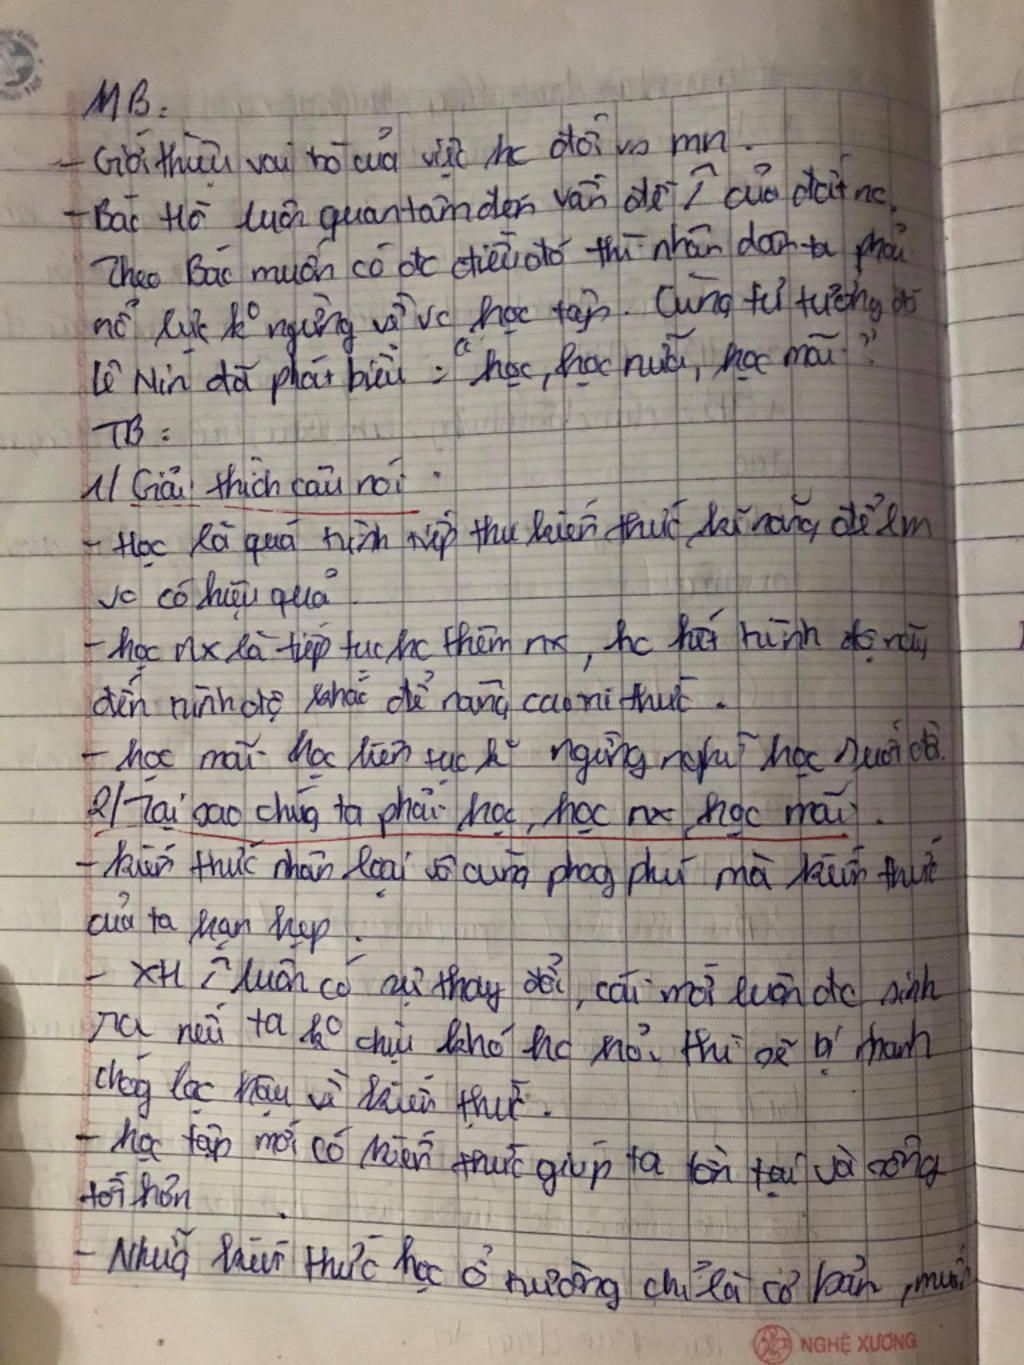 MB:
- Giới thiệu vai trò của việc hc đối vs mn.
- Bác Hồ luôn quan tâm đến vấn đề ↑ của đất nc.
Theo Bác muốn có đc điều đó thì nhân dân ta phải
nổ lực ko ngừng về vc học tập. Cùng tư tưởng đó
Lê Nin đã phát biểu: "học, học nữa, học mãi"
TB:
1/ Giải thích câu nói.
- Học là quá trình tiếp thu kiến thức, kĩ năng để lm
vc có hiệu quả
- học nx là tiếp tục hc thêm nx, hc hết trình độ này
đến trình độ khác để nâng cao tri thức.
- học mãi học liên tục ko ngừng nghỉ học suốt đời.
2/ Tại sao chúng ta phải học, học nx, học mãi.
- kiến thức nhân loại vô cùng phog phú mà kiến thức
của ta hạn hẹp.
- XH ↑ luôn có sự thay đổi, cái mới luôn đc sinh
ra nếu ta ko chịu khó hc hỏi thì sẽ bị nhanh
chóg lạc hậu về kiến thức.
- học tập mới có kiến thức giúp ta tồn tại và sống
tốt hơn.
- Nhữg kiến thức học ở trường chỉ là cơ bản, muốn
NGHỆ XƯƠNG